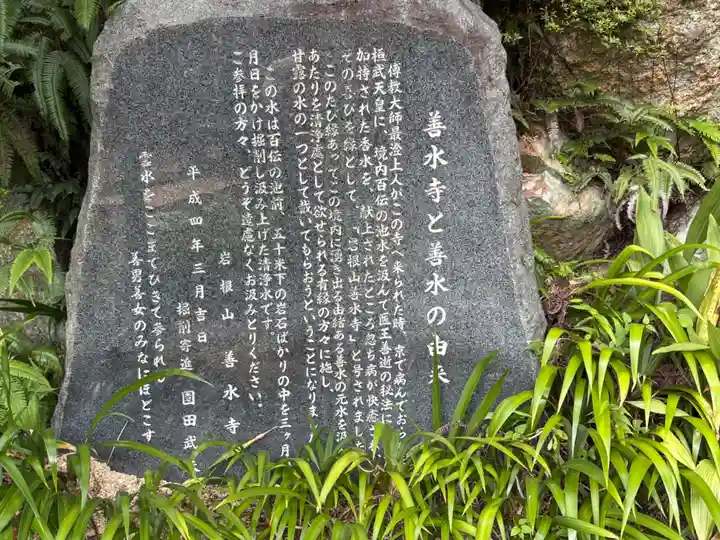 善水寺と善水の由来
傳教大師最澄上人がこの寺へ来られた時、京で病んでおら
桓武天皇に、境内百伝の池水を汲んで医王善逝の秘法に
加持された香水を、献上されたところ忽ち病が快癒
その喜びを縁として、『岩根山善水寺』と号されました
このたび縁あってこの境内に湧き出る由緒ある善水の元水を汲
あたりを清浄處として欲せられる有縁の方々に施し、
甘露の水の一つとして戴いてもらおうということになりまし
この水は百伝の池前、五十米下の岩石ばかりの中を三ヶ月
月日をかけ掘削し汲み上げた清浄水です。
ご参拝の方々、どうぞ遠慮なくお汲みとりください。
岩根山 善水寺
平成四年三月吉日
掘削寄進 園田武
霊水をここまでひきて参られし
善男善女のみなにほどこす